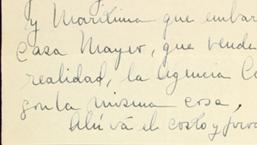 y Marítima que embar
Casa Mayor, que vende
realidad, la Agencia Co
son la misma cosa,
Ahí vá el costo y